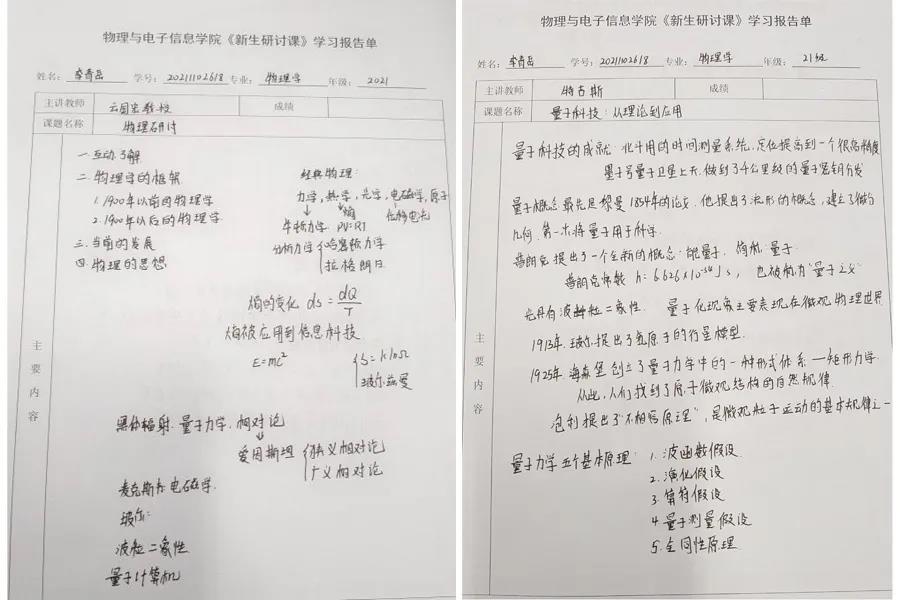 物理与电子信息学院《新生研讨课》学习报告单
姓名: 李青岳 学号: 20211102618 专业: 物理学 年级: 2021
主讲教师 云国宏教授 成绩
课题名称 物理研讨
主要内容
一.互动了解
二.物理学的框架
1.1900年以前的物理学
2.1900年以后的物理学
三.当前的发展
四.物理的思想
经典物理:
力学,热学,光学,电磁学,原子
↓ ↘熵
牛顿力学 PV=RT
分析力学{哈密顿力学
拉格朗日
熵的变化 ds=dQ/T
熵被应用到信息科技
E=mc²
{S=klnΩ
玻尔兹曼
黑体辐射.量子力学.相对论
↓
爱因斯坦{狭义相对论
广义相对论
麦克斯韦电磁学.
玻尔:
波粒二象性
量子计算机
物理与电子信息学院《新生研讨课》学习报告单
姓名: 李青岳 学号: 20211102618 专业: 物理学 年级: 21级
主讲教师 特古斯 成绩
课题名称 量子科技:从理论到应用
主要内容
量子科技的成就 北斗用的时间测量系统,定位提高到一个很高精度
墨子号量子卫星上天.做到了千公里级的量子密钥分发
量子概念最先是黎曼1854年的论文.他提出了流形的概念,建立了微分
几何.第一次将量子用于科学.
普朗克提出了一个全新的概念:能量子.简称:量子.
普朗克常数 h:6.626×10⁻³⁴J s, 也被称为"量子之父"
光具有波粒二象性. 量子化现象主要表现在微观物理世界
1913年.玻尔提出了氢原子的行星模型.
1925年.海森堡创立了量子力学中的一种形式体系——矩形力学.
从此,人们找到了原子微观结构的自然规律.
泡利提出了"不相容原理",是微观粒子运动的基本规律之一
量子力学五个基本原理: 1.波函数假设
2.演化假设
3.算符假设
4.量子测量假设
5.全同性原理